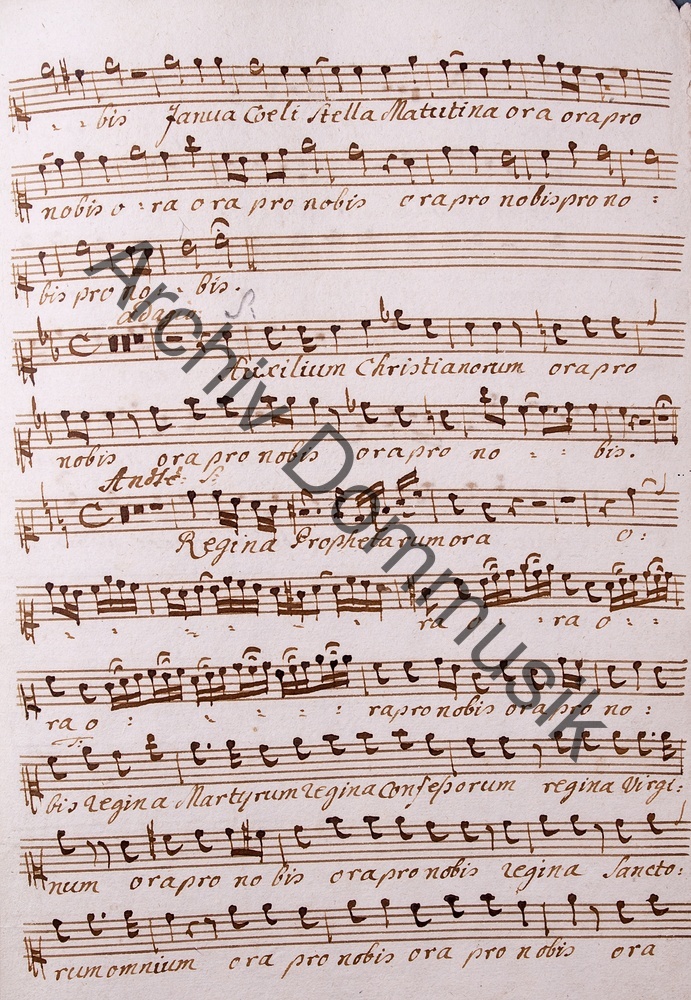 - - bis Janua Coeli Stella Matutina ora ora pro
nobis o - ra ora pro nobis ora pro nobis pro no :
bis pro no - bis.
adagio S:
Auxilium Christianorum ora pro
nobis ora pro nobis ora pro no - : - : bis.
Andte: S:
Regina Prophetarum ora o:
ra o - : ra o : - :
ra o : ra pro nobis ora pro no :
T:
bis Regina Martyrum Regina Confeßorum regina Virgi:
num ora pro nobis ora pro nobis regina Sancto:
rum omnium ora pro nobis ora pro nobis ora
Archiv Dommusik